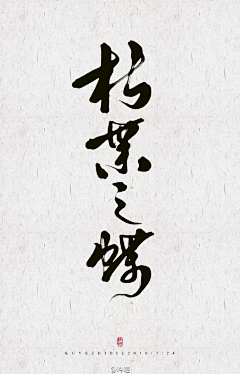 枯葉之蝶
KUYEZHIDIE2016/7/24